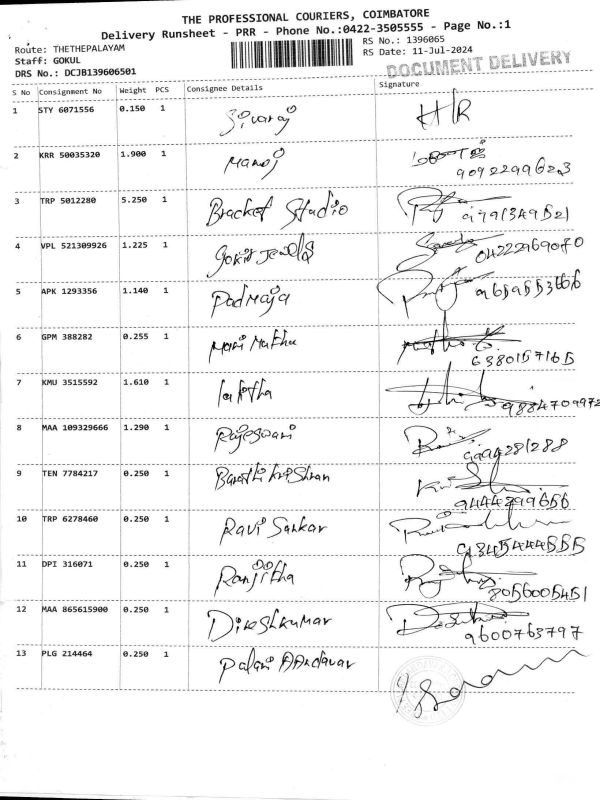 THE PROFESSIONAL COURIERS, COIMBATORE
Delivery Runsheet - PRR - Phone No.:0422-3505555 - Page No.:1
Route: THETHEPALAYAM
RS No.: 1396065
Staff: GOKUL
RS Date: 11-Jul-2024
DRS No.: DCJB139606501
DOCUMENT DELIVERY
S No Consignment No Weight PCS Consignee Details Signature
1 STY 6071556 0.150 1 Sivaraj HR
2 KRR 50035320 1.900 1 Manoj
9092299623
3 TRP 5012280 5.250 1 Bracket Studio 9791349521
4 VPL 521309926 1.225 1 Gokit Jewels 04222969080
5 APK 1293356 1.140 1 Padmaja 9659553666
6 GPM 388282 0.255 1 Mari Muthu
6380157165
7 KMU 3515592 1.610 1 Lalitha 9884709972
8 MAA 109329666 1.290 1 Rajeswari
9994281288
9 TEN 7784217 0.250 1 Barathi krishnan
9444299656
10 TRP 6278460 0.250 1 Ravi Sankar
9345444555
11 DPI 316071 0.250 1 Ranjitha
8056005451
12 MAA 865615900 0.250 1 Dineshkumar
9600763797
13 PLG 214464 0.250 1 Palani AAndavar